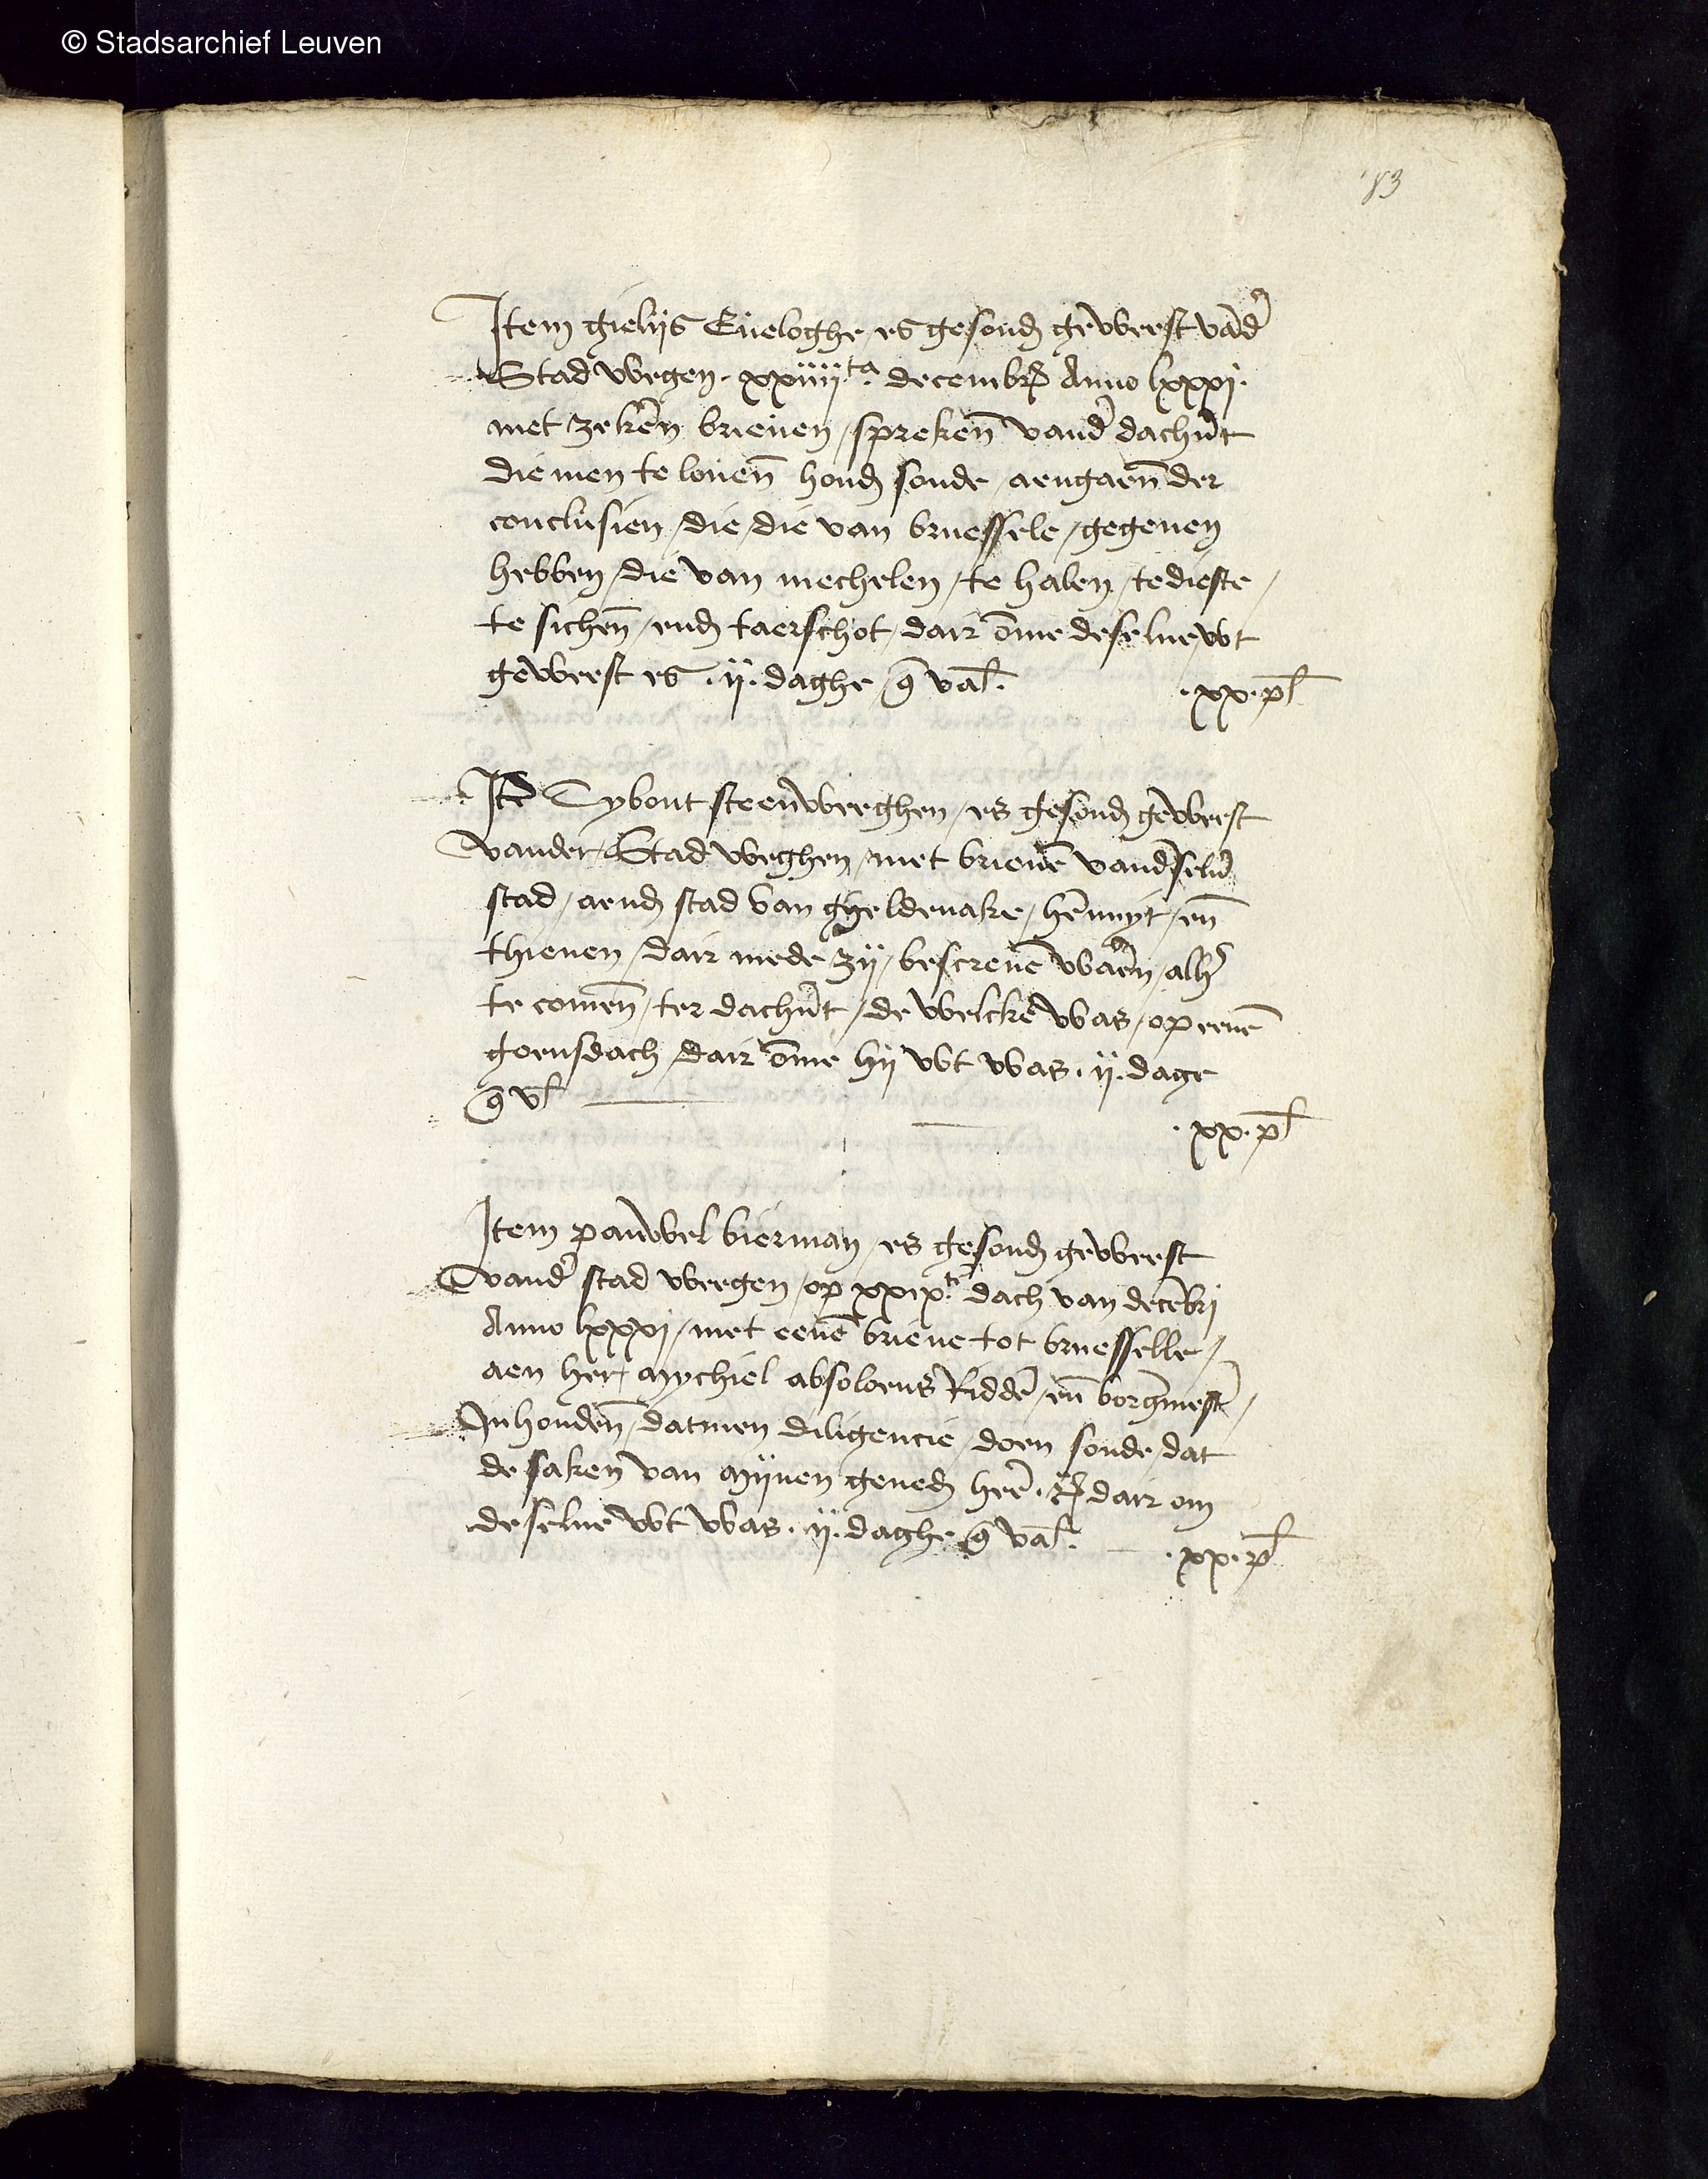 © Stadsarchief Leuven
83
Item gielijs Eueloghe es gesond geweest vand
Stad wegen xxiiij ta decembr Anno lxxxj
met zeken brieuen spreken vand dachut
die men te louen houd soude aengaen der
conclusien die die van bruessele gegeuen
hebben die van mechelen te halen te dieste
te sichen end taerschot dair ome deselue wt
geweest es ij daghe val
xx pl
Ite Tybout steenweeghen es gesond geweest
vander Stad weghen met brieue vandselu
stad aend stad van gheldenake hennuyt en
thienen dair mede zij bescreue ware alh
te comen ter dachut de welcke was op eene
goensdach dair ome hij wt was ij dage
vl
xx pl
Item pauwel bierman es gesond geweest
vand stad weegen op xxix te dach van decebri
Anno lxxxj met eene brieue tot bruesselle
aen her mychiel absoloens Ridde en borgmest
Inhouden datmen diligencie doen soude dat
de saken van mijnen gened here dair om
deselue wt was ij daghe val
xx pl